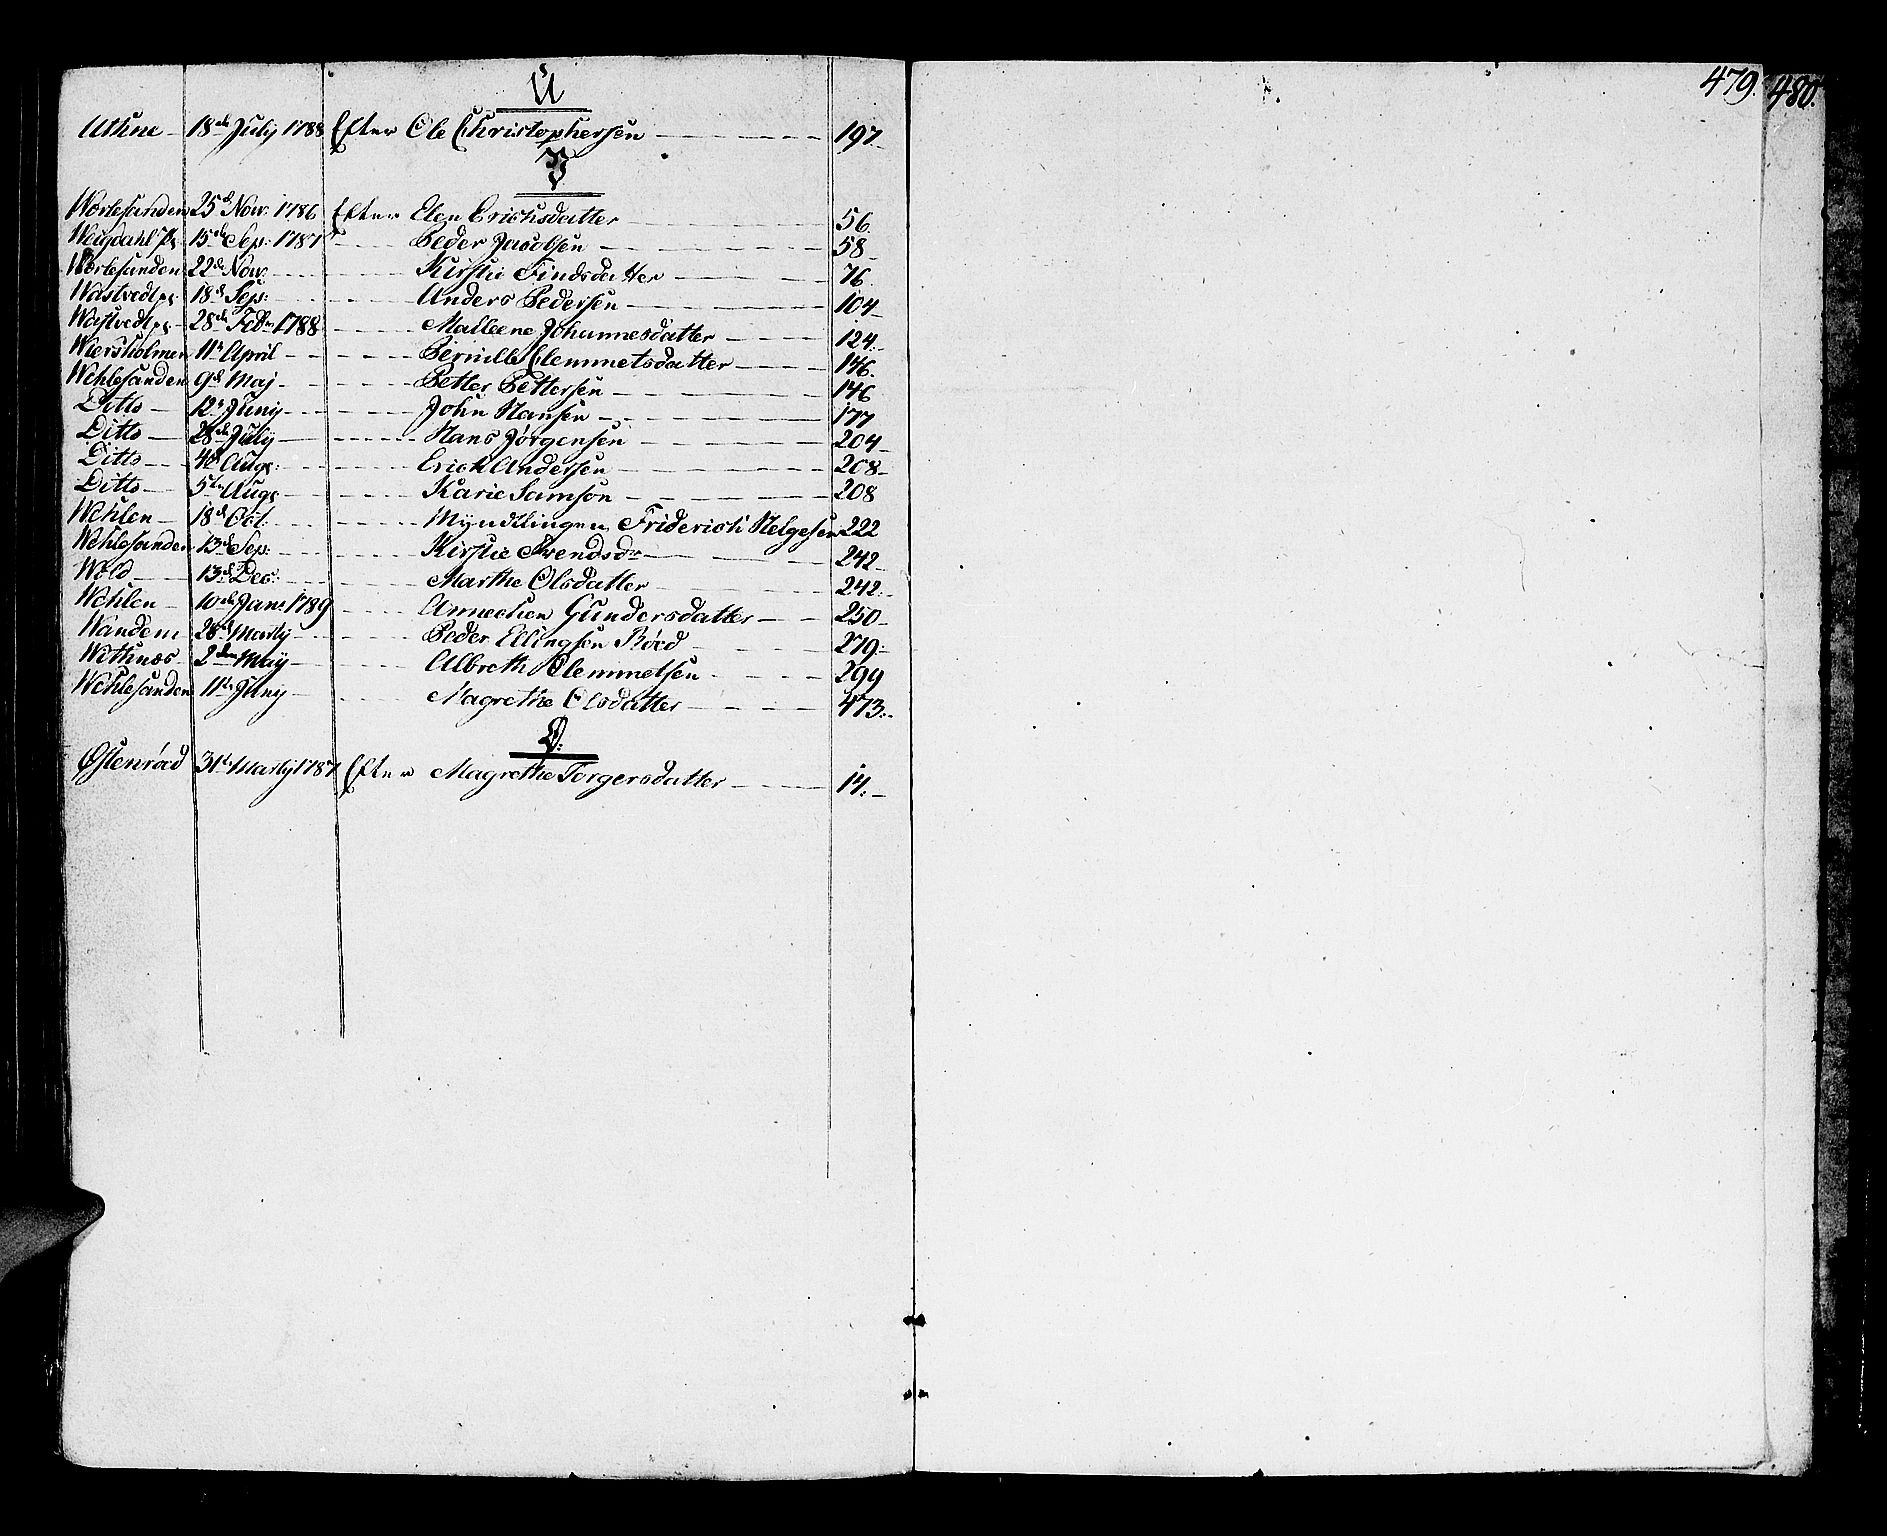 U
Uthne – 18de July 1788 Efter Ole Christophersen – 197
V
Worlesanden 25d Nov: 1786 Efter Elen Erichsdatter 56.
Weigdahl 15de Sep: 1787 Peder Jacobsen – 58
Worlesanden 22de Nov: Kirstie Findsdatter – 76
Wastvedt 18d Sep: Anders Pedersen – 104
Wastvedt 28de Feb: 1788 Malleene Johannesdatter – 124
Wiersholmen 11te April – Pernille Clemmetsdatter – 146.
Wehlesanden 9d Maj – Petter Pettersen – 146
Ditto – 12te Juny – John Hansen – 177
Ditto – 28de July – Hans Jörgensen – 204
Ditto – 4d Aug: Erich Andersen – 208
Ditto – 5te Aug: Karie Samson – 208
Wehlen – 18d Oct: Myndtlingen Friderich Helgesen 222
Wehlesanden 13d Sep: Kirstie Svendsdr – 242
Wold 13d Dec: Marthe Olsdatter 242
Wehlen – 10de Jan: 1789 Annechen Gundersdatter – 250
Wandem 28de Marty Peder Ellingsen Röed 279
Wethnæs 2den May – Albreth Clemmetsen 299
Wehlesanden 11te Juny – Magrethe Olsdatter – 473.
Ø:
Østenröed 31te Marty 1787 Efter Magrethe Torgersdatter – 14.
479.
480.